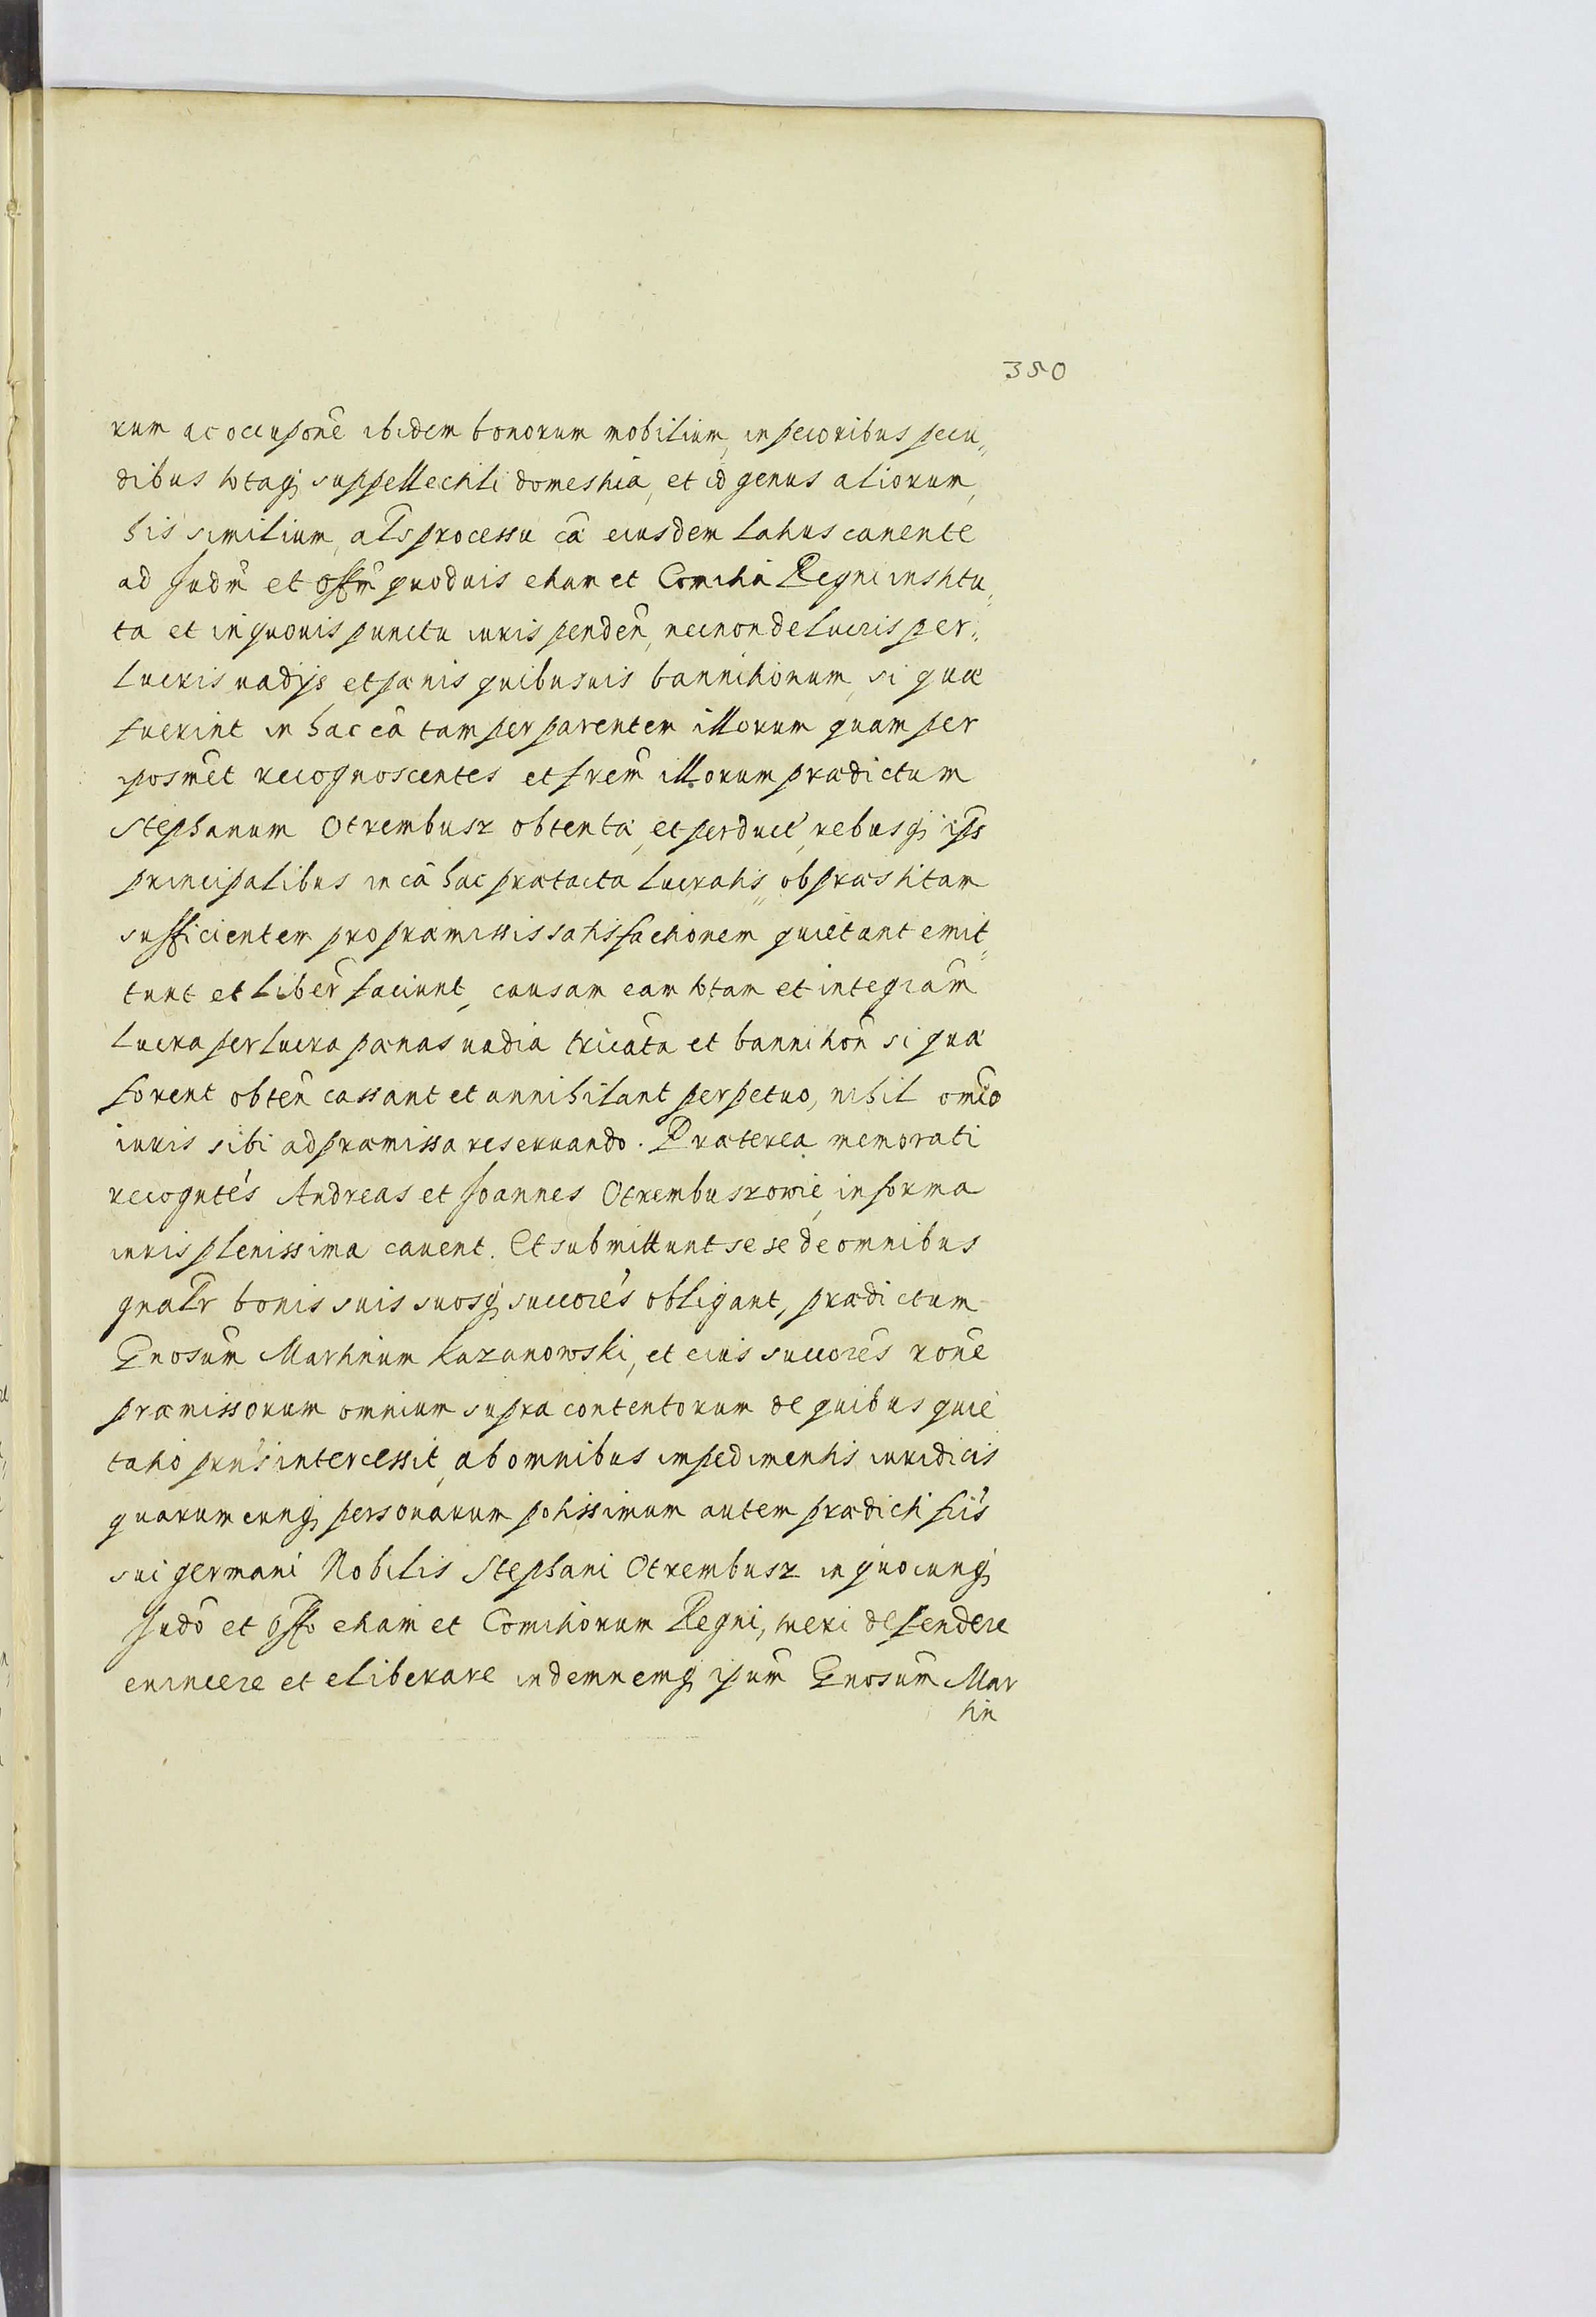 350
rum ac occupõne ibidem bonorum mobilium, in pecoribus pecu„
dibus totaq; suppellectili domestica, et id genus aliorum,
his similium, al̃s processu cã eiusdem latius canente
ad Judm̃ et Offm̃ quoduis etiam et Comitia Regni institu„
ta et in quouis punctu iuris penden̄, necnon de lucris per„
lucris vadijs et pænis quibusuis bannitionum, si quæ
fuerint in hac cã tam per parentem illorum quam per
ipsosmet recognoscentes et frem̃ illorum prædictum
Stephanum Otrembusz obtenta, et perduct, rebusq; ip̃s
principalibus in cã hac prætacta lucratis„ ob præstitam
sufficientem pro præmissis satisfactionem quietant emit„
tunt et liber̃ faciunt, causam eam totam et integram̃
lucra perlucra pænas vadia tricata et bannition̄ si quæ
forent obten̄ cassant et annihilant perpetuo, nihil om̃io
iuris sibi ad præmissa reseruando. Præterea memorati
recogntẽs Andreas et Joannes Otrembuszowie, in forma
iuris plenissima cauent. Et submittunt se se de omnibus
gnal̃r bonis suis suosq; succorẽs obligant, prædictum
Gnosum̃ Martinum Kazanowski, et eius succorẽs rõne
præmissorum omnium supra contentorum de quibus quie
tatio prñs intercessit, ab omnibus impedimentis iuridicis
quarumcunq; personarum potissimum autem prædicti fr̃is
sui germani Nobilis Stephani Otrembusz in quocunq;
Judõ et Offõ etiam et Comitiorum Regni, tueri defendere
euincere et eliberare indemnemq; ipsum̃ Gnosum̃ Mar
tin